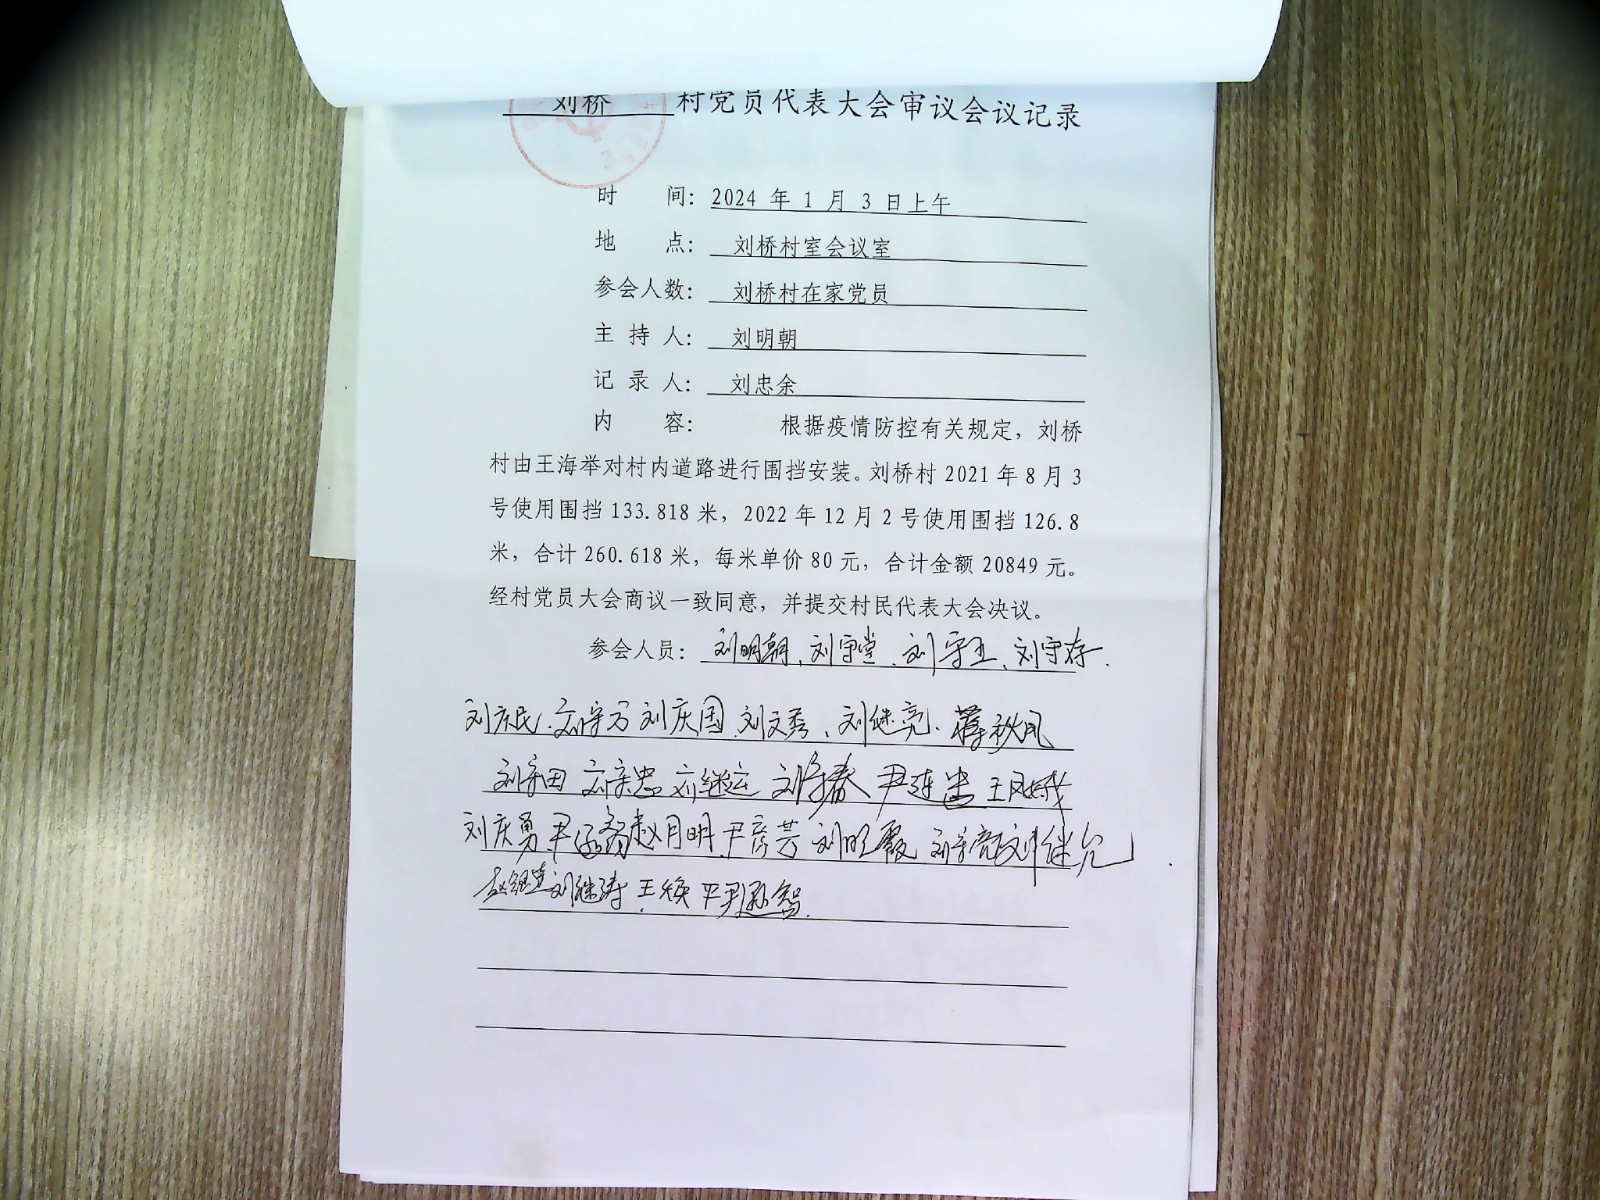 刘桥 村党员代表大会审议会议记录
时 间: 2024 年 1 月 3 日上午
地 点: 刘桥村室会议室
参会人数: 刘桥村在家党员
主 持 人: 刘明朝
记 录 人: 刘忠余
内 容: 根据疫情防控有关规定，刘桥
村由王海举对村内道路进行围挡安装。刘桥村 2021 年 8 月 3
号使用围挡 133.818 米，2022 年 12 月 2 号使用围挡 126.8
米，合计 260.618 米，每米单价 80 元，合计金额 20849 元。
经村党员大会商议一致同意，并提交村民代表大会决议。
参会人员: 刘明朝、刘守堂、刘守玉、刘守存.
刘庆民.刘守万 刘庆国 刘文秀、刘继亮.蒋秋风
刘宗田 刘宗忠 刘继云 刘守春 尹连忠 王凤娥
刘庆勇 赵月明 尹彦芸 刘明霞 刘守亮 刘继允
赵继建 刘继涛 王焕平